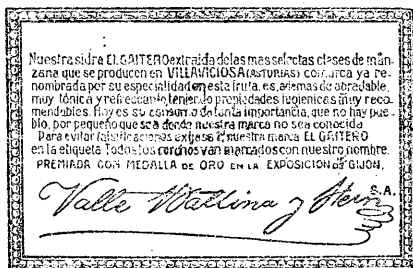 Nuestra sidra EL GAITERO extraida de las mas selectas clases de man-
zana que se producen en VILLAVICIOSA (ASTURIAS) comarca ya re-
nombrada por su especialidad en esta fruta, es, ademas de agradable,
muy tónica y refrescante, teniendo propiedades higienicas muy reco-
mendables. Hoy es su consumo de tanta importancia, que no hay pue-
blo, por pequeño que sea donde nuestra marca no sea conocida
Para evitar falsificaciones exijase nuestra marca EL GAITERO
en la etiqueta Todos los corchos van marcados con nuestro nombre.
PREMIADA CON MEDALLA DE ORO EN LA EXPOSICION DE GIJON.
S.A.
Valle Ballina y Fern